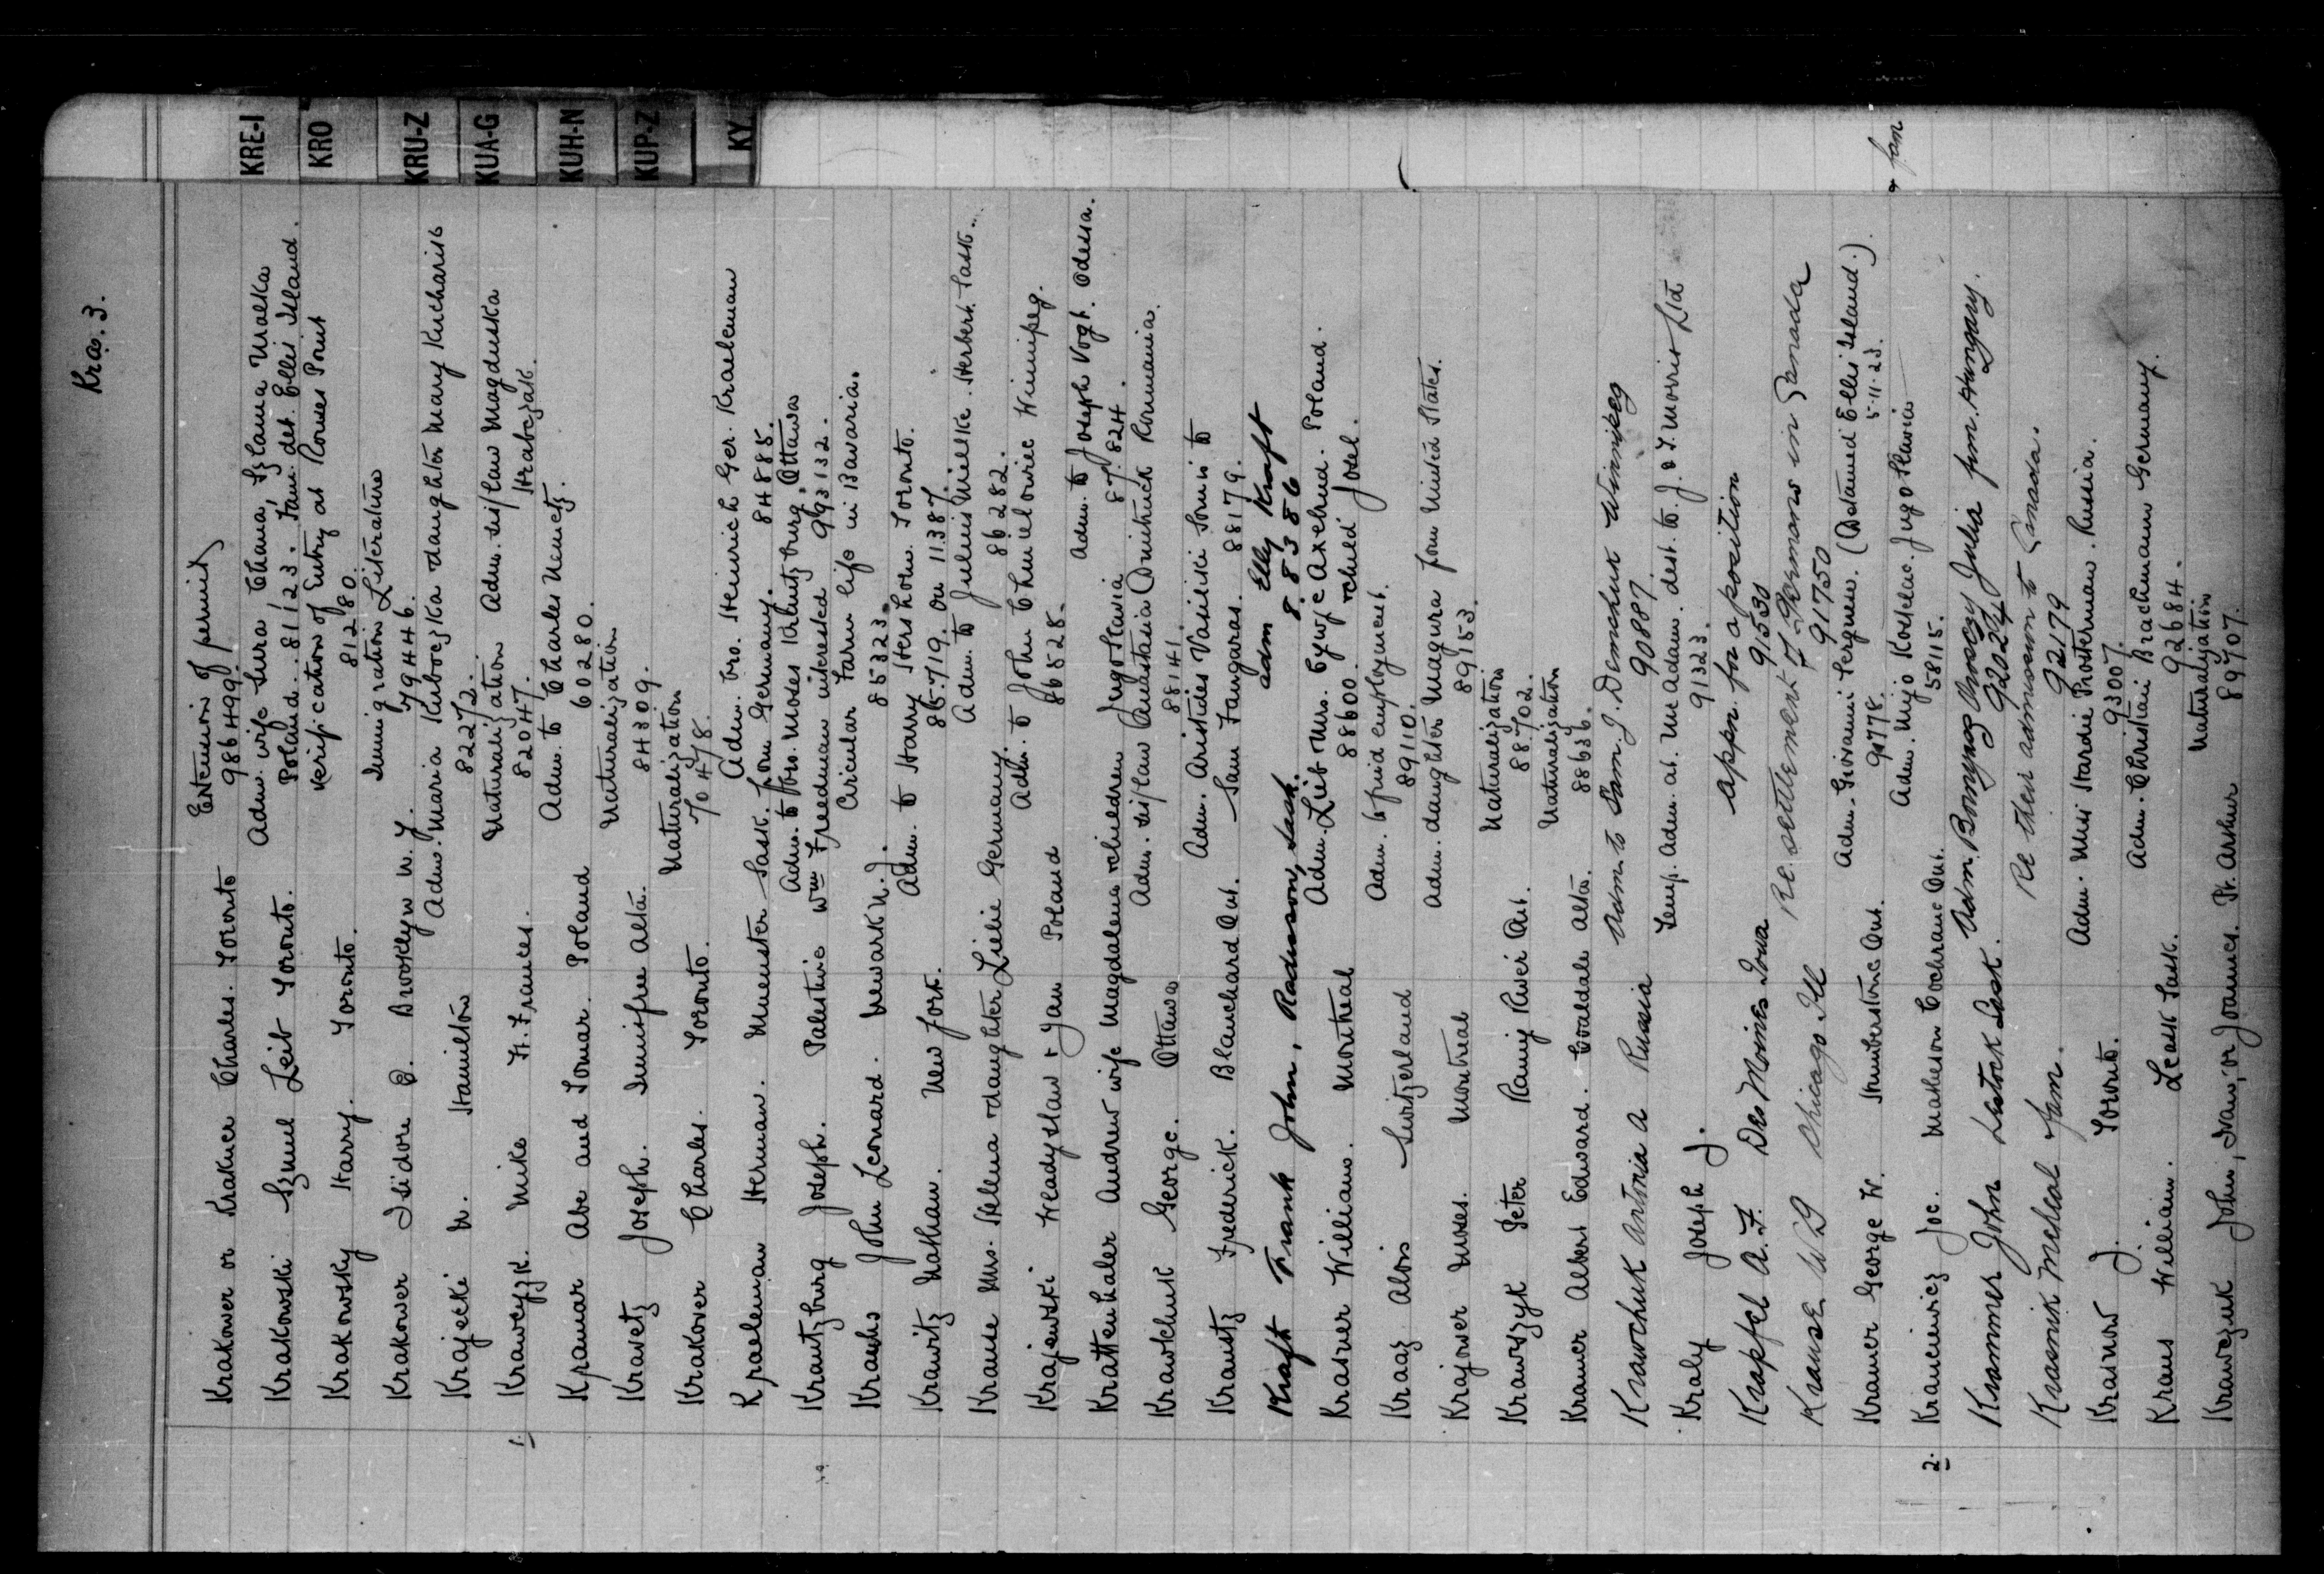 Kra. 3.
KRE-I
KRO
KRU-Z
KUA-G
KUH-N
KUP-Z
KY
Krakower or Krakner Charles. Toronto Extension of permit
986499.
Krakowski Szmul Leib Toronto. Adm. wife Sura, Chana, Szlama Malka
Poland. 81123. Fam. det. Ellis Island.
Krakowsky Harry. Toronto. Verification of Entry at Rouses Point
81280.
Krakower Isidore B. Brooklyn N.Y. Immigration Literature
79446.
Krajecki M. Hamilton Adm. Maria Kuboczka daughter Mary Kucharik
82272.
1. Kraweyzk. Mike Ft. Frances. Naturalization Adm. sis/law Magduska
82047. Hrabczak.
Kramar Abe and Tomar. Poland Adm. to Charles Nemetz.
60280.
Kravetz Joseph. Innisfree Alta. Naturalization
84309.
Krakover Charles. Toronto. Naturalization
70478.
Kraeleman Herman. Muenster Sask. Adm. bro. Heinrich Ger. Kraeleman
from Germany. 84885.
Krautzburg Joseph. Palestine Adm. to bro. Moses Krautzburg, Ottawa
Wm Freedman interested 993132.
Krauhs John Leonard. Newark N.J. Circular Farm life in Bavaria.
85323.
Krawitz Nathan. New York. Adm. to Harry Hershorn. Toronto.
85719. on 11387.
Krause Mrs. Helena + daughter Lielie Germany. Adm. to Julius Mielke. Herbert Sask.
86282.
Krajewski Wladyslaw + Jan Poland Adm. to John Chmielowiec Winnipeg.
86528.
Krattenhaler Andrew wife Magdalena + children Jugo Slavia Adm. to Joseph Vogt. Odessa.
87.824.
Krawtchuk George. Ottawa Adm. sis/law Anastasia Dmitruck Roumania.
88141.
Krautz Frederick. Blanchard Ont. Adm. Aristides Vasiliki Sonis to
Sam Fangaras. 88179.
Kraft Frank John, Radisson, Sask. adm Elly Kraft
8.83886
Krasner William. Montreal Adm. Lieb + Mrs. Cywje Axelrud. Poland.
88600. + child Josel.
Kraaz Alois Switzerland Adm. & find employment.
89110.
Krajower Moses. Montreal Adm. daughter Magura from United States.
89153.
Krawszyk Peter Rainy River Ont. Naturalization
88702.
Kramer Albert Edward. Coaldale Alta. Naturalization
88636.
Krawchuk Antonia A Russia Adm to Sam. J. Demchuk Winnipeg
90887.
Kraly Joseph J. Temp. Adm. at. McAdam. dest. to. J. & T. Morris Ltd
91323.
Krapfel A. F. Des Moines Iowa appn. for a position
91530
Krause W B Chicago Ill Re settlement of Germans in Canada
91750
Kramer George W. Humberstone Ont. Adm. Giovanni Pergnew. (Detained Ellis Island.)
90778. 5-11-23.
2. Kraucivicz Joe. Matheson Cochrane Ont. Adm. Mijo Kostelac. Jugo Slavia + fam
58115.
Krammer John Lestock Sask. Adm. Bonynog Anczy Julia fm. Hungary.
92024
Krasnik Micheal + fam. Re their admission to Canada.
92179
Krasnow J. Toronto. Adm. Miss Hardie Prosterman. Russia.
93007.
Kraus William. Leask Sask. Adm. Christian Brachmann Germany.
92684.
Krawczuk John, Ivan, or Joannes. Pt. Arthur Naturalization
89707.